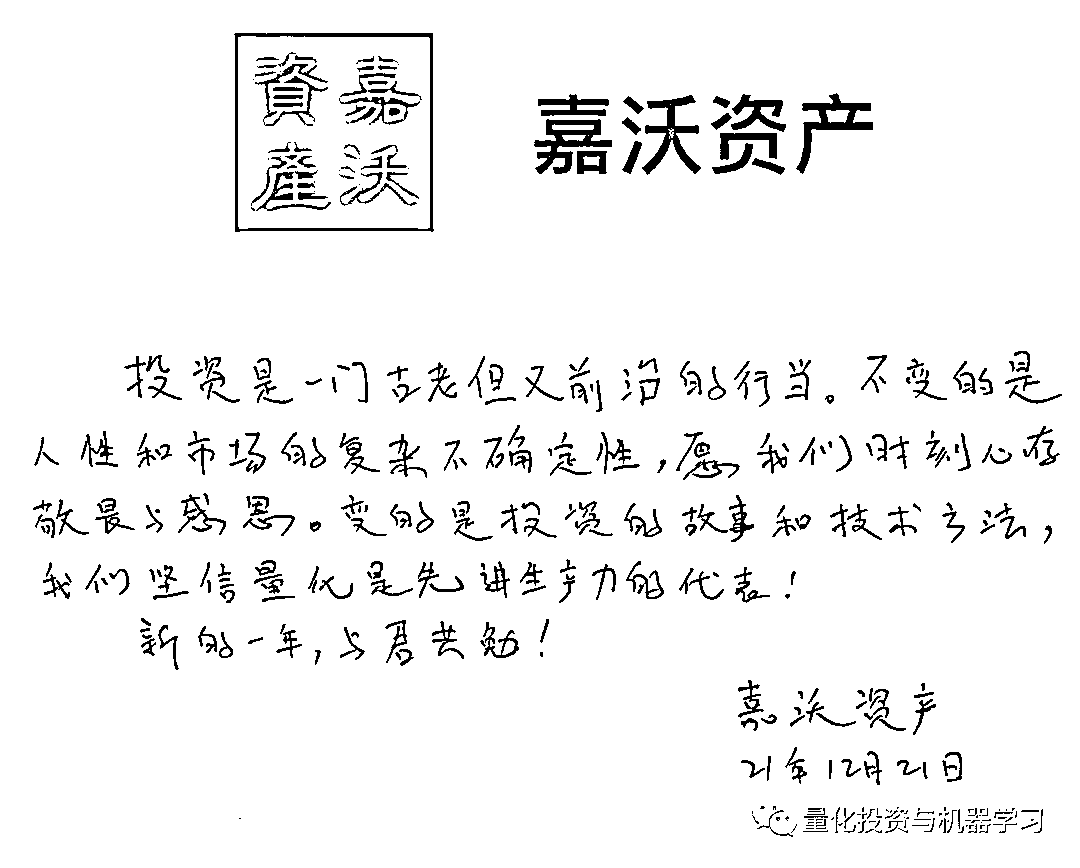 嘉沃
資產
嘉沃资产
投资是一门古老但又前沿的行当。不变的是
人性和市场的复杂不确定性，愿我们时刻心存
敬畏与感恩。变的是投资的故事和技术方法，
我们坚信量化是先进生产力的代表！
新的一年，与君共勉！
嘉沃资产
21年12月21日
量化投资与机器学习